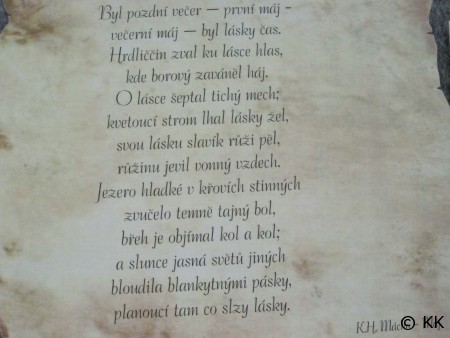 Byl pozdní večer – první máj -
večerní máj – byl lásky čas.
Hrdliččin zval ku lásce hlas,
kde borový zaváněl háj.
O lásce šeptal tichý mech;
kvetoucí strom lhal lásky žel,
svou lásku slavík růži pěl,
růžinu jevil vonný vzdech.
Jezero hladké v křovích stinných
zvučelo temně tajný bol,
břeh je objímal kol a kol;
a slunce jasná světů jiných
bloudila blankytnými pásky,
planoucí tam co slzy lásky.
K.H.
© KK